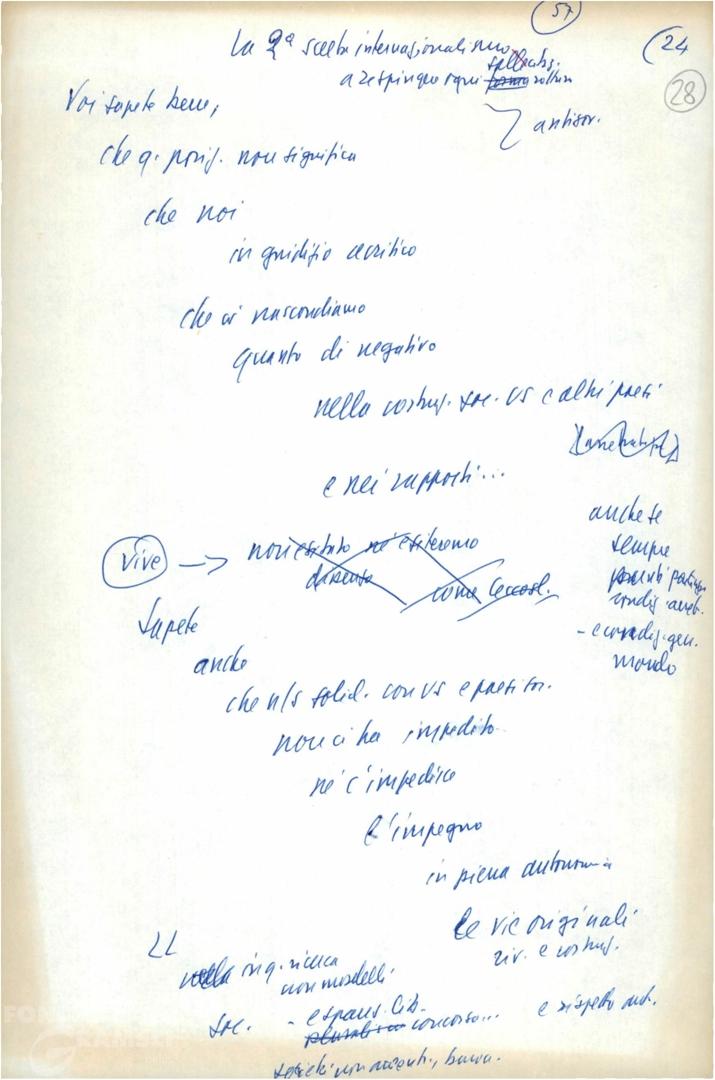 57
(24
28
La 2ª scelta internazionalismo
a respingere ogni forma rottura
antisov.
Voi sapete bene,
che q. posiz. non significa
che noi
in giudizio acritico
che ci nascondiamo
quanto di negativo
nella costruz. soc. us e altri paesi
e nei rapporti...
anche se
sempre
vive → non esitato né esiteremo
dissenso
come Cecosl.
condiz. arret.
- e condiz. gen.
mondo
Sapete
anche
che ns solid. con us e paesi soc.
non ci ha impedito
né c'impedisce
l'impegno
in piena autonomia
le vie originali
riv. e costruz.
nella ricerca
non modelli
soc. - espans. lib.
pluralismo concorso... e rispetto aut.